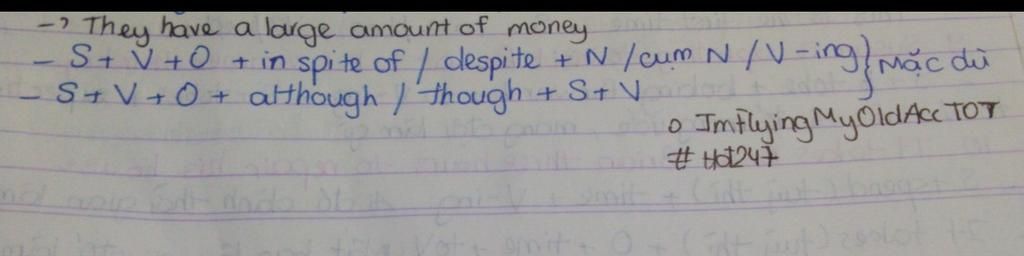 -> They have a large amount of money
- S + V + O + in spite of / despite + N / cụm N / V-ing } Mặc dù
- S + V + O + although / though + S + V
o ImflyingMyOldAcc TOT
# Hot247